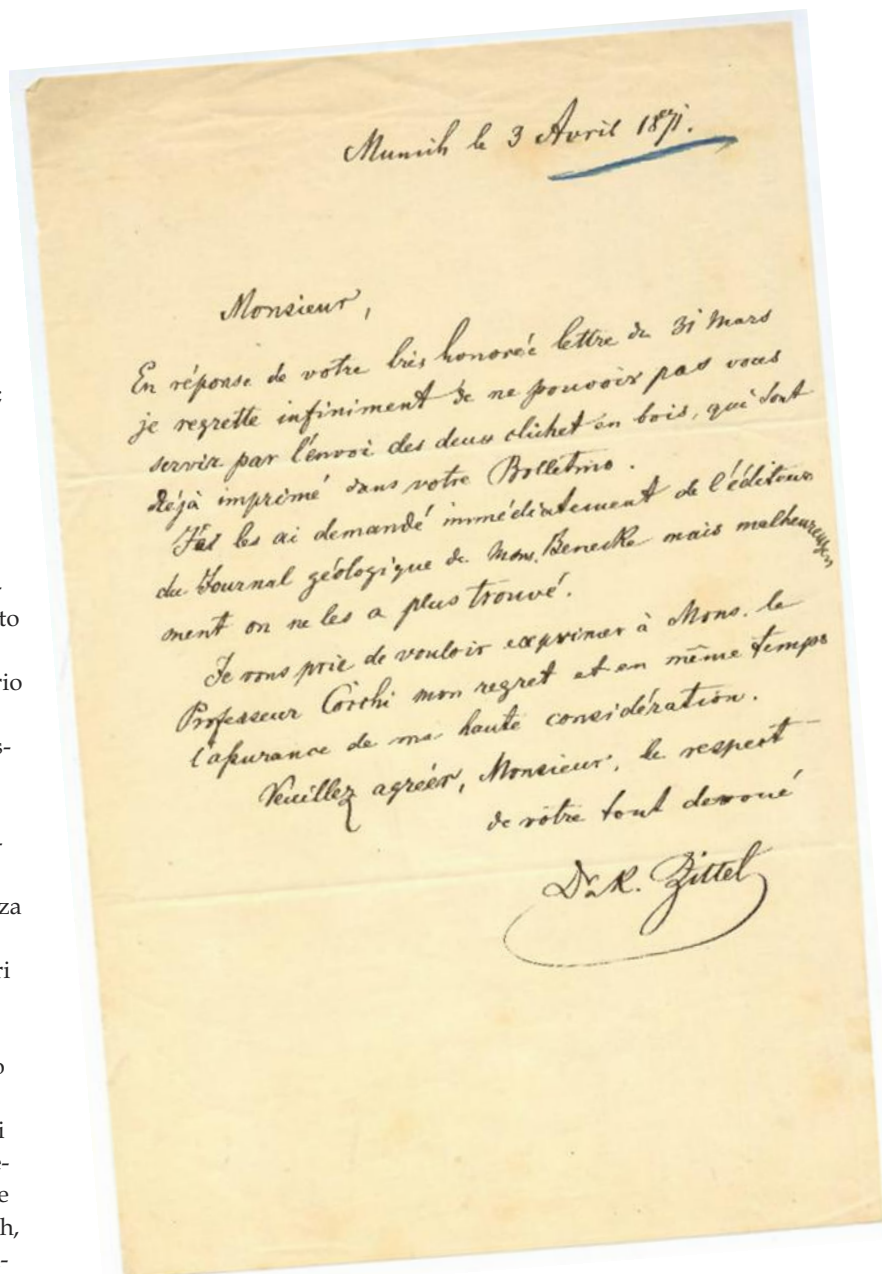 Munich le 3 Avril 1871.
Monsieur,
En réponse de votre très honorée lettre du 31 Mars
je regrette infiniment de ne pouvoir pas vous
servir par l'envoi des deux clichet en bois, qui sont
déjà imprimé dans votre Bolletino.
les ai demandé immédiatement de l'éditeur
du Journal géologique de Mons. Benecke mais malheureusem
ment on ne les a plus trouvé.
Je vous prie de vouloir exprimer à Mons. le
Professeur mon regret et en même temps
l'assurance de ma haute considération.
Veuillez agréer, Monsieur, le respect
de vôtre tout devoué
Dr. K. Zittel
to
rio
s-
-
za
ri
i
e-
e
h,
-